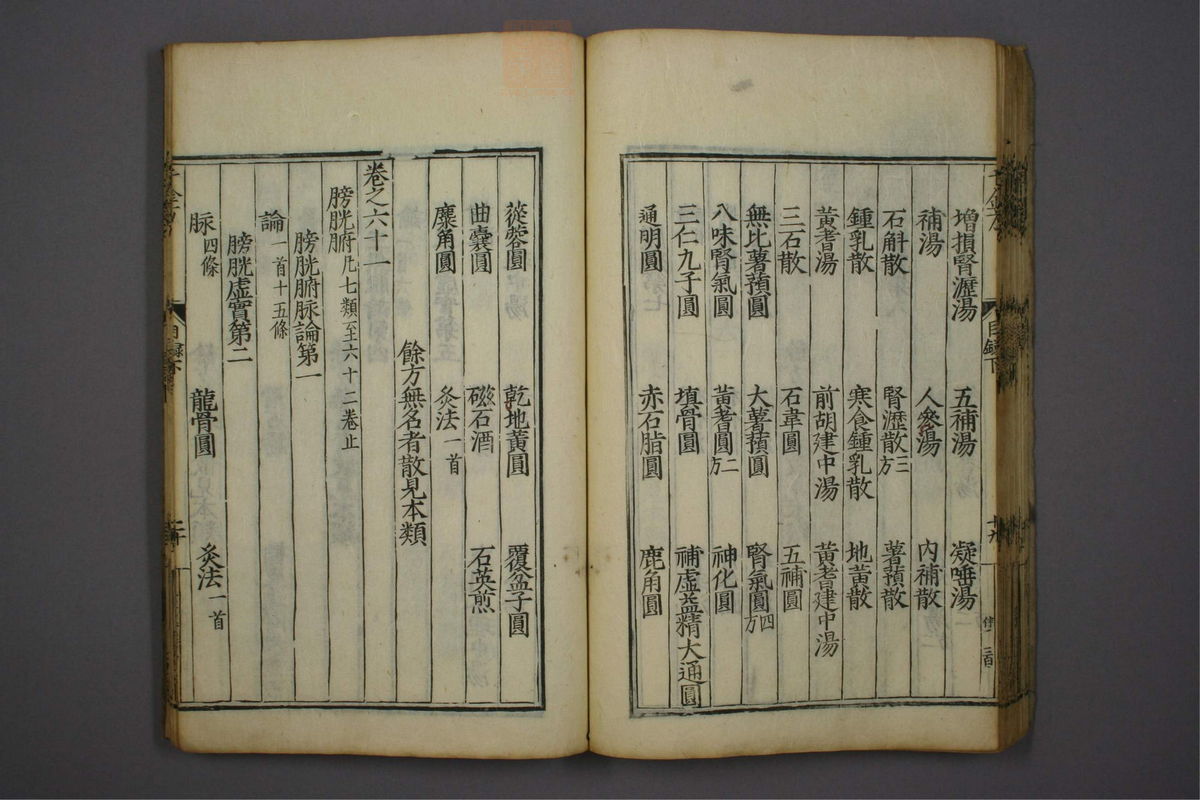 增損腎瀝湯 五補湯 凝唾湯
補湯 人參湯 內補散
石斛散 腎瀝散三方 薯蕷散
鍾乳散 寒食鍾乳散 地黃散
黃耆湯 前胡建中湯 黃耆建中湯
三石散 石韋圓 五補圓
無比薯蕷圓 大薯蕷圓 腎氣圓四方
八味腎氣圓 黃耆圓二方 神化圓
三仁九子圓 填骨圓 補虛益精大通圓
通明圓 赤石脂圓 鹿角圓
蓯蓉圓 乾地黃圓 覆盆子圓
曲囊圓 磁石酒 石英煎
麋角圓 灸法一首
餘方無名者散見本類
卷之六十一
膀胱腑凡七類至六十二卷止
膀胱腑脉論第一
論一首十五條
膀胱虛實第二
脉四條 龍骨圓 灸法一首